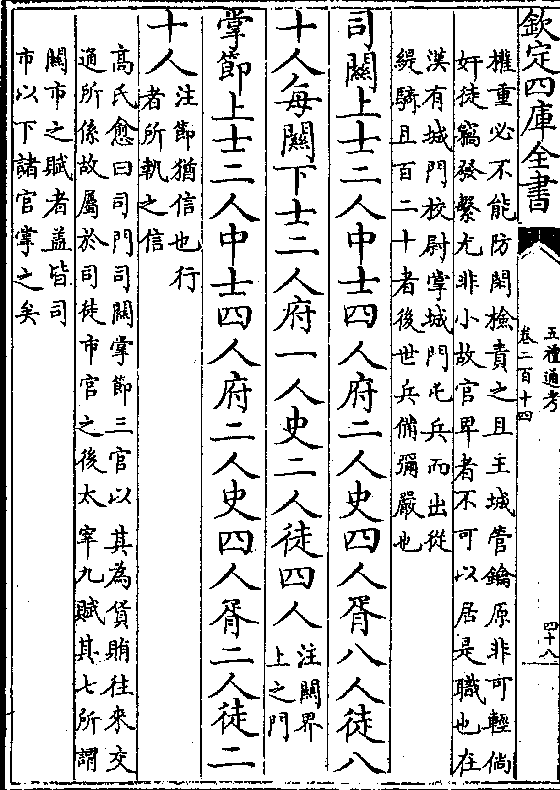 欽定四庫全書
五禮通考
卷二百十四
四十八
權重必不能防閑檢責之且主城管鑰原非可輕倘
奸徒竊發繫尤非小故官卑者不可以居是職也在
漢有城門校尉掌城門屯兵而出從
緹騎且百二十者後世兵備彌嚴也
司關上士二人中士四人府二人史四人胥八人徒八
十人每關下士二人府一人史二人徒四人
注關界
上之門
掌節上士二人中士四人府二人史四人胥二人徒二
十人
注節猶信也行
者所執之信
高氏愈曰司門司關掌節三官以其為貨賄往來交
通所係故屬於司徒市官之後太宰九賦其七所謂
關市之賦者蓋皆司
市以下諸官掌之矣